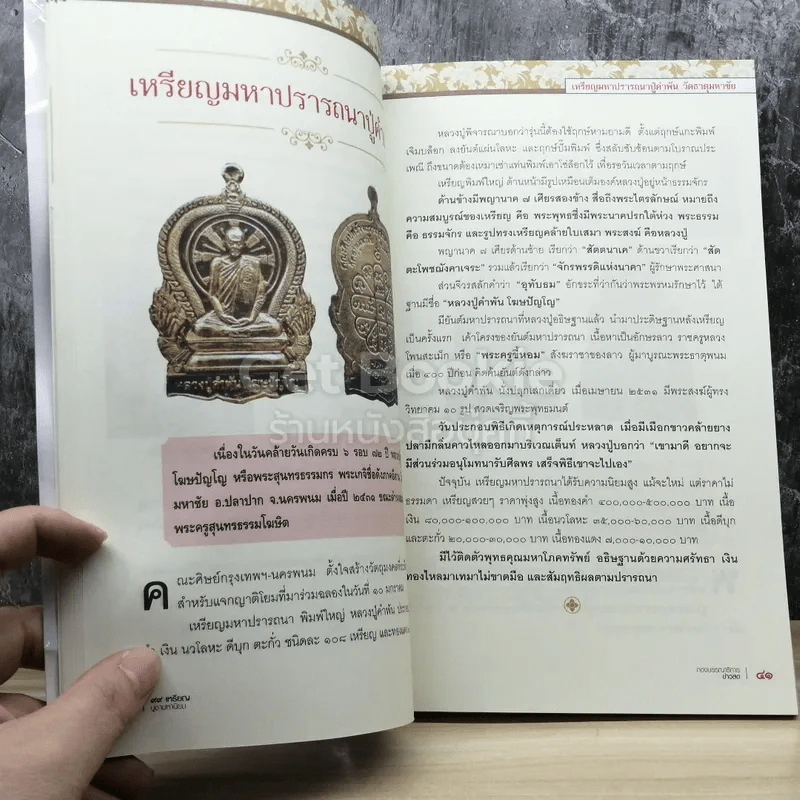 เหรียญมหาปรารถนาปู่คำ
หลวงปู่คำพัน
เนื่องในวันคล้ายวันเกิดครบ ๖ รอบ ๗๒ ปี
โฆษปัญโญ หรือพระสุนทรธรรมกร พระเกจิชื่อดังภาคอีสาน
มหาชัย อ.ปลาปาก จ.นครพนม เมื่อปี ๒๕๓๑
พระครูสุนทรธรรมโฆษิต
คณะศิษย์กรุงเทพฯ-นครพนม ตั้งใจสร้างวัตถุมงคล
สำหรับแจกญาติโยมที่มาร่วมฉลองในวันที่ ๑๐
เหรียญมหาปรารถนา พิมพ์ใหญ่ หลวงปู่คำพัน
เงิน นวโลหะ ดีบุก ตะกั่ว ชนิดละ ๑๐๘ เหรียญ
๙๙ เหรียญ
เหรียญมหาปรารถนาปู่คำพัน วัดธาตุมหาชัย
หลวงปู่พิจารณาบอกว่ารุ่นนี้ต้องใช้ฤกษ์หามยามดี ตั้งแต่ฤกษ์แกะพิมพ์
เจิมบล็อก ลงยันต์แผ่นโลหะ และฤกษ์ปั๊มพิมพ์ ซึ่งสลับซับซ้อนตามโบราณประ
เพณี ถึงขนาดต้องเหมาเช่าแท่นพิมพ์เอาโซ่ล็อกไว้ เพื่อรอวันเวลาตามฤกษ์
เหรียญพิมพ์ใหญ่ ด้านหน้ามีรูปเหมือนเต็มองค์หลวงปู่อยู่หน้าธรรมจักร
ด้านข้างมีพญานาค ๗ เศียรสองข้าง สื่อถึงพระไตรลักษณ์ หมายถึง
ความสมบูรณ์ของเหรียญ คือ พระพุทธซึ่งมีพระนาคปรกใต้ห่วง พระธรรม
คือ ธรรมจักร และรูปทรงเหรียญคล้ายใบเสมา พระสงฆ์ คือหลวงปู่
พญานาค ๗ เศียรด้านซ้าย เรียกว่า “สัตตนาเค” ด้านขวาเรียกว่า “สัต
ตะโพชณังคาเจระ” รวมแล้วเรียกว่า “จักรพรรดิแห่งนาคา” ผู้รักษาพระศาสนา
ส่วนจีวรสลักคำว่า “อุทับธม” อักขระที่ว่ากันว่าพระพรหมรักษาไว้ ใต้
ฐานมีชื่อ “หลวงปู่คำพัน โฆษปัญโญ”
มียันต์มหาปรารถนาที่หลวงปู่อธิษฐานแล้ว นำมาประดิษฐานหลังเหรียญ
เป็นครั้งแรก เค้าโครงของยันต์มหาปรารถนา เนื้อหาเป็นอักษรลาว ราชครูหลวง
โพนสะเม็ก หรือ “พระครูขี้หอม” สังฆราชาของลาว ผู้มาบูรณะพระธาตุพนม
เมื่อ ๔๐๐ ปีก่อน คิดค้นยันต์ดังกล่าว
หลวงปู่คำพัน นั่งปลุกเสกเดี่ยว เมื่อเมษายน ๒๕๓๑ มีพระสงฆ์ผู้ทรง
วิทยาคม ๑๐ รูป สวดเจริญพระพุทธมนต์
วันประกอบพิธีเกิดเหตุการณ์ประหลาด เมื่อมีเมือกขาวคล้ายยาง
ปลามีกลิ่นคาวไหลออกมาบริเวณเต็นท์ หลวงปู่บอกว่า “เขามาดี อยากจะ
มีส่วนร่วมอนุโมทนารับศีลพร เสร็จพิธีเขาจะไปเอง”
ปัจจุบัน เหรียญมหาปรารถนาได้รับความนิยมสูง แม้จะใหม่ แต่ราคาไม่
ธรรมดา เหรียญสวยๆ ราคาพุ่งสูง เนื้อทองคำ ๔๐๐,๐๐๐-๕๐๐,๐๐๐ บาท เนื้อ
เงิน ๘๐,๐๐๐-๑๐๐,๐๐๐ บาท เนื้อนวโลหะ ๓๕,๐๐๐-๖๐,๐๐๐ บาท เนื้อดีบุก
และตะกั่ว ๒๐,๐๐๐-๓๐,๐๐๐ บาท เนื้อทองแดง ๗,๐๐๐-๑๐,๐๐๐ บาท
มีไว้ติดตัวพุทธคุณมหาโภคทรัพย์ อธิษฐานด้วยความศรัทธา เงิน
ทองไหลมาเทมาไม่ขาดมือ และสัมฤทธิผลตามปรารถนา
กองบรรณาธิการ
ข่าวสด
๔๑
Get Bookie
ร้านหนังสือ